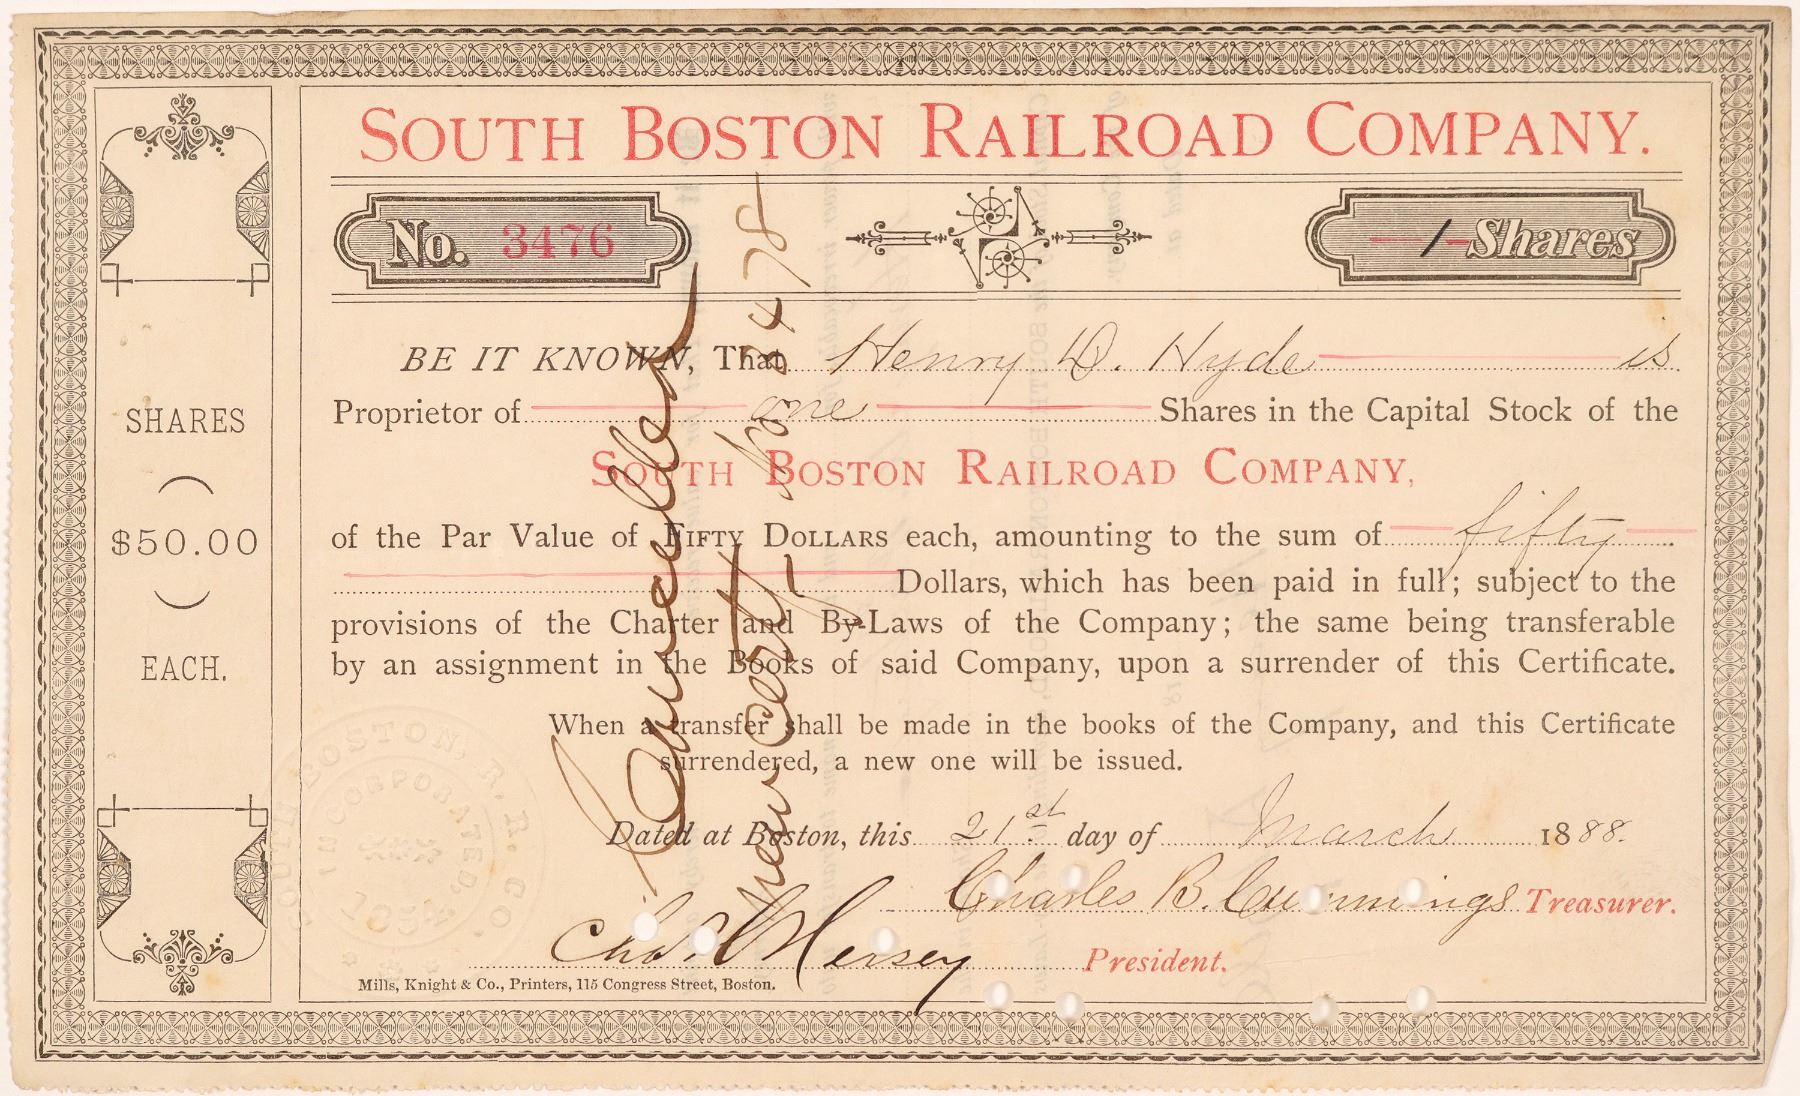 SOUTH BOSTON RAILROAD COMPANY.
No. 3476
1 Shares
BE IT KNOWN, That Henry D. Hyde is
Proprietor of one Shares in the Capital Stock of the
SOUTH BOSTON RAILROAD COMPANY,
of the Par Value of FIFTY DOLLARS each, amounting to the sum of fifty
Dollars, which has been paid in full; subject to the
provisions of the Charter and By-Laws of the Company; the same being transferable
by an assignment in the Books of said Company, upon a surrender of this Certificate.
When a transfer shall be made in the books of the Company, and this Certificate
surrendered, a new one will be issued.
Dated at Boston, this 21st day of March 1888.
Charles B. Cummings Treasurer.
Chas. Hersey President.
Mills, Knight & Co., Printers, 115 Congress Street, Boston.
SHARES
$50.00
EACH.
Cancelled
New Certf. No 3478
SOUTH BOSTON, R. R. CO.
INCORPORATED,
1854